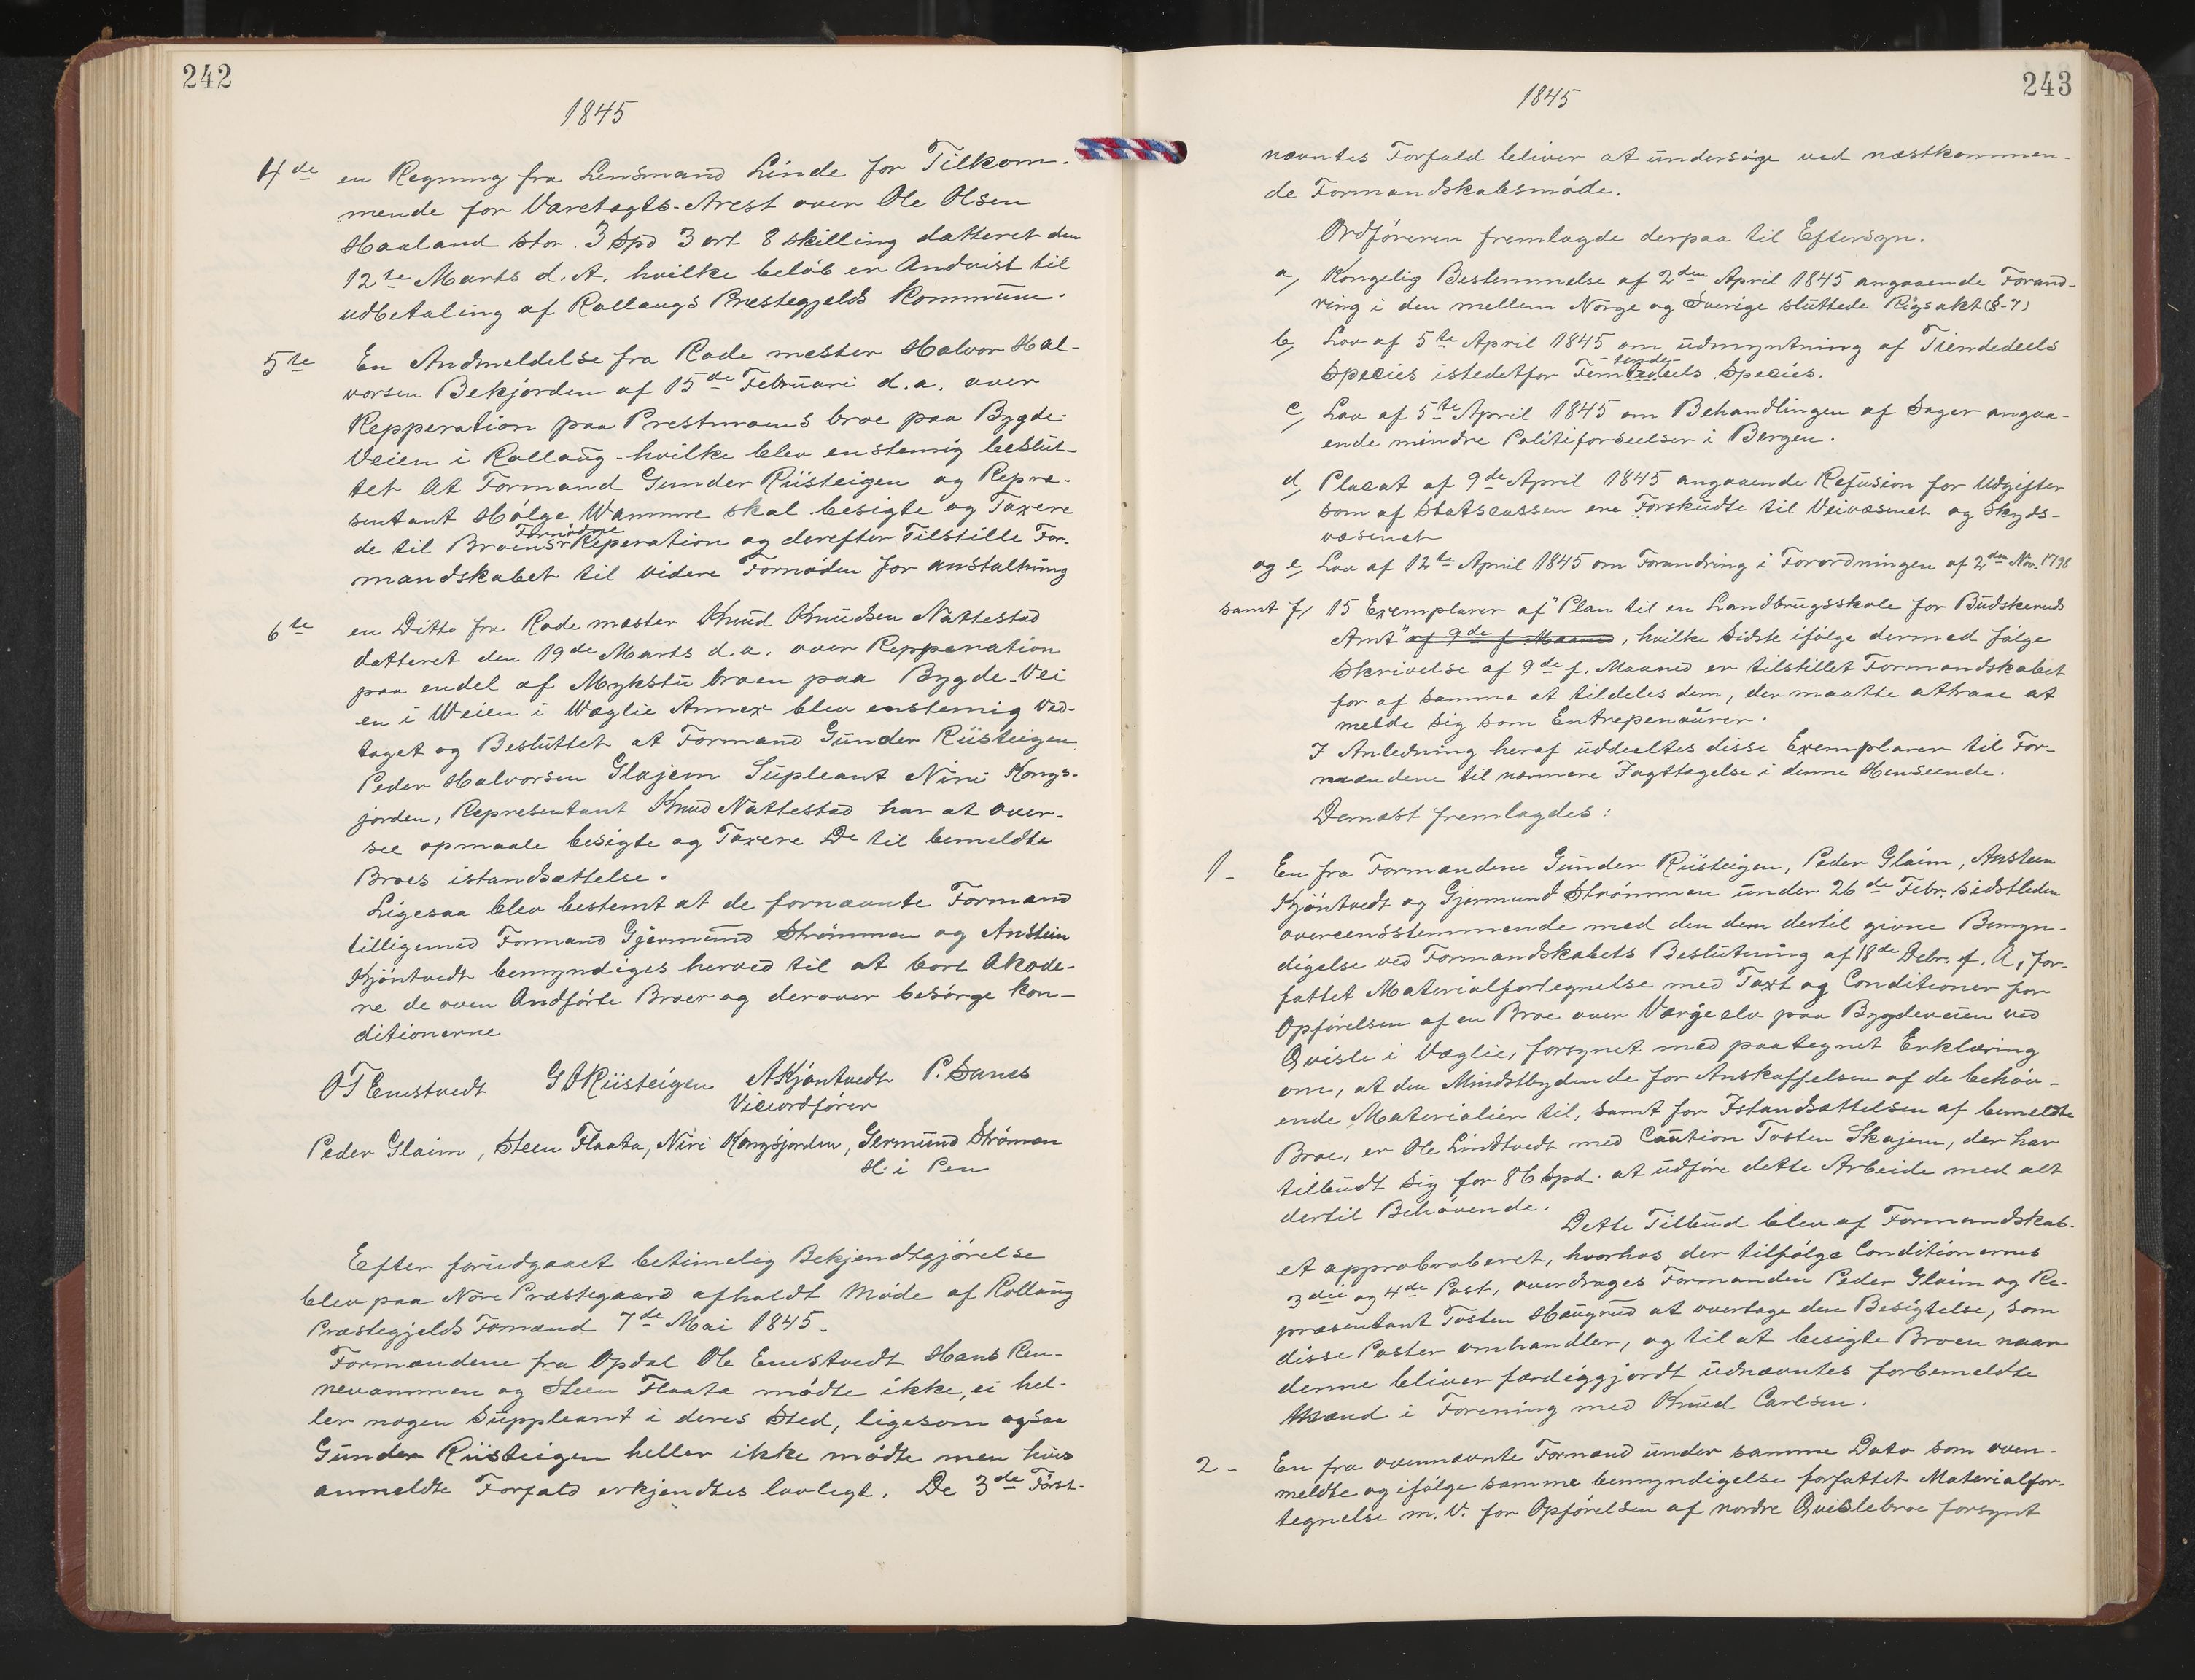 242
1845
4de en Regning fra Lensmand Linde for Tilkom-
mende for Varetagts-Arest over Ole Olsen
Haaland stor. 3 Spd 3 ort 8 skilling datteret den
12te Marts d. A. hvilke beløb er Andvist til
udbetaling af Rollaugs Prestegjelds Kommune.
5te En Andmeldelse fra Rode mester Halvor Hal-
vorsen Bekjorden af 15de Februari d. a. over
Repperation paa Prestmoens broe paa Bygde-
Veien i Rollaug - hvilke blev enstemig beslut-
tet At Formand Gunder Riisteigen og Repre-
sentant Hølge Wammre skal besigte og Taxere
Fornødne
de til Broens Reperation og derefter Tilstille For-
mandskabet til videre Fornøden for anstaltning
6te en Ditto fra Rode mæster Knud Knudsen Nattestad
datteret den 19de Marts d. a. over Repperation
paa endel af Mykstu broen paa Bygde-Vei
en i Weien i Wæglie Annex blev enstemig ved-
taget og Besluttet at Formand Gunder Riisteigen
Peder Halvorsen Glajem Supleant Niri Kongs-
jorden, Representant Knud Nattestad har at over-
see opmaale besigte og Taxere De til bemeldte
Broes istandsættelse.
Ligesaa blev bestemt at de fornævnte Formænd
tilligemed Formand Gjermund Strømmen og Anstein
Kjøntvedt bemyndiges herved til at bort Akode-
re de oven Andførte Broer og derover besørge Kon-
ditionerne
OT Enstvedt GORiisteigen AKjøntvedt P. Sanes
Viceordfører
Peder Glaim, Steen Flaata, Niri Kongsjorden, Germund Strømen
H. i Pen
Efter forudgaaet betimelig Bekjendtgjørelse
blev paa Nore Præstegaard afholdt Møde af Rollaug
Præstegjelds Formænd 7de Mai 1845.
Formændene fra Opdal Ole Enstvedt Hans Ren-
nevammen og Steen Flaata mødte ikke, ei hel-
ler nogen Suppleant i deres Sted, ligesom ogsaa
Gunder Riisteigen heller ikke mødte men hvis
anmeldte Forfald erkjendtes lovlegt. De 3de Først-
243
1845
nævntes Forfald bliver at undersøge ved næstkommen-
de Formandskabsmøde.
Ordføreren fremlagde derpaa til Eftersyn.
a, Kongelig Bestemmelse af 2den April 1845 angaaende Forand-
ring i den mellem Norge og Sverige sluttede Rigsakt (§-7)
b, Lov af 5te April 1845 om udmyntning af Tiendedeels
- tende-
Species istedetfor Femtedeels Species.
c, Lov af 5te April 1845 om Behandlingen af Sager angaa-
ende mindre Politiforseelser i Bergen.
d, Placat af 9de April 1845 angaaende Refusion for Udgifter
som af Statscassen ere Forskudte til Veivæsnet og Skyds-
væsenet
og e, Lov af 12te April 1845 om Forandring i Forordningen af 2den Nov. 1798
samt f, 15 Exemplarer af "Plan til en Landbrugsskole for Budskeruds
Amt" af 9de f. Maaned, hvilke sidste ifølge dermed følge
Skrivelse af 9de f. Maaned er tilstillet Formandskabet
for af samme at tildeles dem, der maatte attraae at
melde sig som Entrepenøurer.
I Anledning heraf uddeeltes disse Exemplarer til For-
mændene til nærmere Iagttagelse i denne Henseende.
Dernæst fremlagdes:
1- En fra Formændene Gunder Riisteigen, Peder Glaim, Ansteen
Kjøntvedt og Gjermund Strømmen under 26de Febr. sidstleden
overeensstemmende med den dem dertil givne Bemyn-
digelse ved Formandskabets Beslutning af 18de Debr. f. A, for-
fattet Materialfortegnelse med Taxt og Conditioner for
Opførelsen af en Broe over Værgeelv paa Bygdeveien ved
Qvisle i Væglie, forsynet med paategnet Erklæring
om, at den Mindstbydende for Anskaffelsen af de behøv-
ende Materialier til, samt for Istandsættelsen af bemeldte
Broe, er Ole Lindtvedt med Caution Tosten Skajem, der har
tilbudt sig for 86 Spd. at udføre dette Arbeide med alt
dertil Behøvende.
Dette Tilbud blev af Formandskab-
et approbraberet, hvorhos der tilfølge Conditionernes
3die og 4de Post, overdrages Formanden Peder Glaim og Re-
præsentant Tosten Haugrud at overtage den Besigtelse, som
disse Poster omhandler, og til at besigte Broen naar
denne bliver færdiggjordt udnævntes forbemeldte
Mænd i Forening med Knud Carlsen.
2- En fra ovennævnte Formænd under samme Dato som oven-
meldte og ifølge samme bemyndigelse forfattet Materialfor-
tegnelse m. V. for Opførelsen af nordre Qvislebroe forsynt